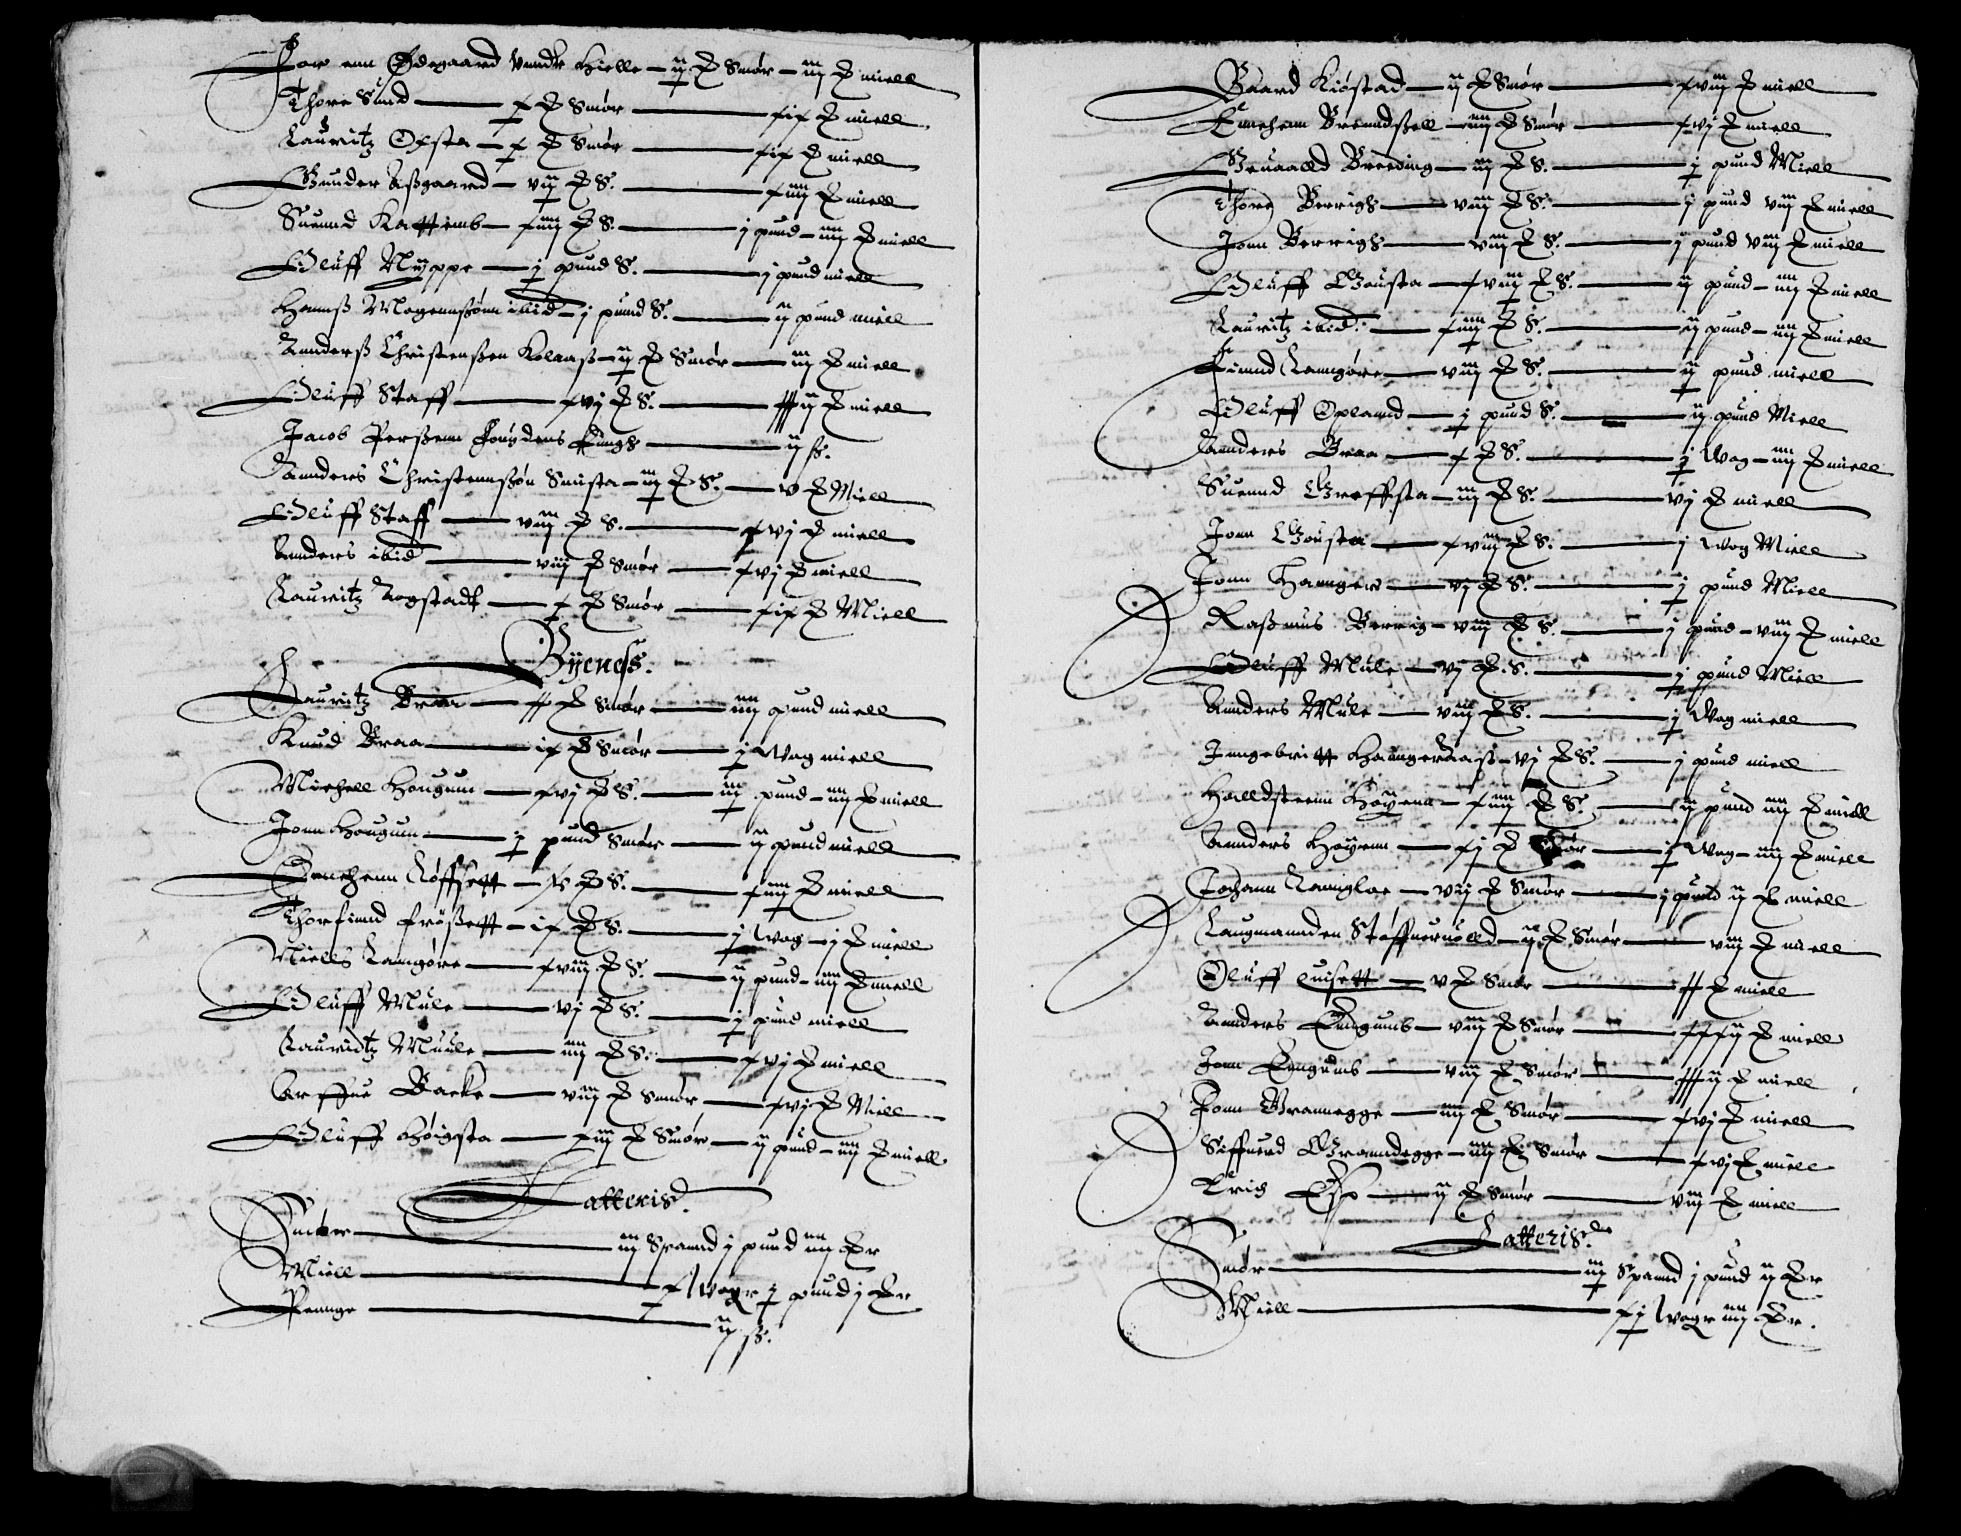 Aff enn Ødegaard Vundr Hielle — ij ℔ Smør — iij ℔ miell
Thore Sund — x ℔ Smør — xix ℔ miell
Lauritz Ofsta — x ℔ Smør — xix ℔ miell
Gunder Aßgaard — vij ℔ S. — xiiij ℔ miell
Suennd Kattemb — xiiij ℔ S. — j pund – iiij ℔ miell
Oluff Nÿppe — j pund S. — j pund miell
Hannß Mogennßønn ibid — j pund S. — ij pund miell
Annderß Christenßen Kolaaß — ij ℔ Smør — iiij ℔ miell
Oluff Staff — xvj ℔ S. — xxxij ℔ miell
Jacob Perßenn — ij ß.
Annders Christennßøn Smista — iij ℔ S. — v ℔ Miell
Oluff Staff — viij ℔ S. — xvj ℔ miell
Annders ibid — viij ℔ Smør — xvj ℔ miell
Lauritz Rogstadt — x ℔ Smør — xix ℔ Miell
Byeneß.
Lauritz Braa — xx ℔ Smør — iiij pund miell
Knud Braa — ix ℔ Smør — j Wog miell
Michell Hougum — xvj ℔ S. — iij pund – iiij ℔ miell
Jonn Hougum — j pund Smør — ij pund miell
Enchenn Løffsett — x ℔ S. — xiiij ℔ miell
Thorfinnd Frößett — ix ℔ S. — j Wog – j ℔ miell
Niells Langøre — xviij ℔ S. — ij pund – iiij ℔ miell
Oluff Mule — vj ℔ S. — j pund miell
Lauridtz Muule — iiij ℔ S. — xvj ℔ miell
Arffue Backe — viij ℔ Smør — xvj ℔ Miell
Oluff Høigsta — xiij ℔ Smør — ij pund – iiij ℔ miell
Latteris.
Smöer — iij Spannd j pund iiij ℔r
Miell — x Wogr j pund j ℔r
Pennge — ij ß.
Baard Kiöstad — ij ℔ Smør — xviij ℔ miell
Enchenn Brenndßell — iiij ℔ Smør — xvj ℔ miell
Greuolld Breeding — iij ℔ S. — j pund Miell
Thore Berrigh — viij ℔ S. — j pund viij ℔ miell
Jonn Berrigh — viij ℔ S. — j pund viij ℔ miell
Oluff Gousta — xviij ℔ S. — ij pund – iiij ℔ miell
Lauritz ibid: — xiiij ℔ S. — ij pund – iiij ℔ miell
Finnd Lanngøre — viij ℔ S. — ij pund miell
Oluff Oplannd — j pund S. — ij pund Miell
Annders Braa — x ℔ S. — j Wog – iiij ℔ miell
Suennd Greffsta — iij ℔ S. — vj ℔ miell
Jonn Gousta — xviij ℔ S. — j Wog Miell
Jonn Hannger — vj ℔ S. — j pund Miell
Raßmus Berrig — viij ℔ S. — j pund – viij ℔ miell
Oluff Mule — vj ℔ S. — j pund Miell
Annders Mule — viij ℔ S. — j Wog miell
Inngebritt Hanngeraaß — vj ℔ S. — j pund miell
Halldsteenn Høyenn — xiiij ℔ S. — ij pund iiij ℔ miell
Annders Høyenn — xj ℔ Smør — j Wog – iiij ℔ miell
Johann Lanngloe — vij ℔ Smør — j pund ij ℔ miell
Laugmannden Støffneruolld — ij ℔ Smør — viij ℔ miell
Oluff — v ℔ Smør — xx ℔ miell
Annders Enngumb — viij ℔ Smør — xxxij ℔ miell
Jonn Enngumb — viij ℔ Smør — xxxij ℔ miell
Jonn Grannegge — iiij ℔ Smør — xvj ℔ miell
Siffuerd Granndegge — iiij ℔ Smør — xvj ℔ miell
Erich Esp — ij ℔ Smør — viij ℔ miell
Latteris.
Smør — iij Spannd j pund ij ℔r
Miell — xj Wogr iiij ℔r.